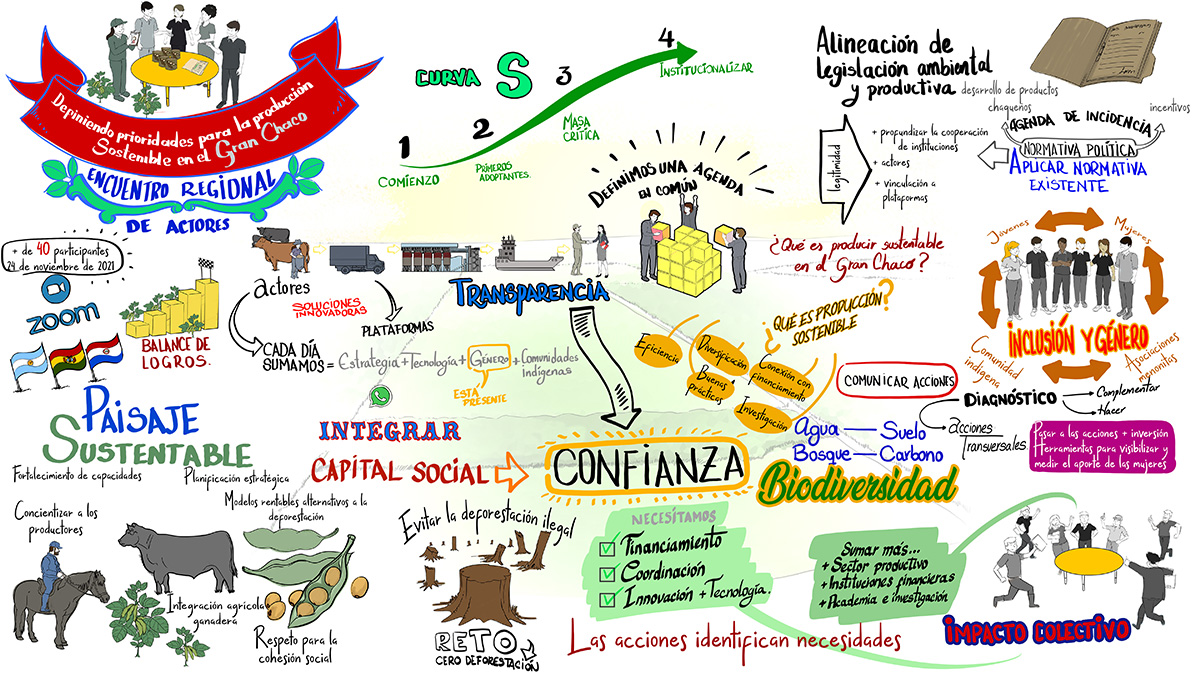 Definiendo prioridades para la producción
Sostenible en el Gran Chaco
ENCUENTRO REGIONAL
DE ACTORES
+ de 40 participantes
24 de noviembre de 2021
zoom
BALANCE DE
LOGROS.
CURVA S
1
COMIENZO
2
PRIMEROS
ADOPTANTES.
3
MASA
CRÍTICA
4
INSTITUCIONALIZAR
DEFINIMOS UNA AGENDA
EN COMÚN
Alineación de
legislación ambiental
y productiva
legitimidad
+ profundizar la cooperación
de instituciones
+ actores
+ vinculación a
plataformas
desarrollo de productos
chaqueños
incentivos
AGENDA DE INCIDENCIA
NORMATIVA POLÍTICA
APLICAR NORMATIVA
EXISTENTE
actores
SOLUCIONES
INNOVADORAS
PLATAFORMAS
TRANSPARENCIA
CADA DÍA
SUMAMOS = Estrategia + Tecnología + GÉNERO + Comunidades
indígenas
ESTÁ
PRESENTE
¿Qué es producir sustentable
en el Gran Chaco?
¿QUÉ ES PRODUCCIÓN
SOSTENIBLE?
Eficiencia
Diversificación
Buenas
prácticas
Conexión con
financiamiento
Investigación
Jóvenes
Mujeres
INCLUSIÓN Y GÉNERO
Comunidad
indígena
Asociaciones
menonitas
COMUNICAR ACCIONES
DIAGNÓSTICO
Complementar
Hacer
acciones
Transversales
Pasar a las acciones + inversión
Herramientas para visibilizar y
medir el aporte de las mujeres
PAISAJE
SUSTENTABLE
Fortalecimiento de capacidades
Planificación estratégica
Concientizar a los
productores
Modelos rentables alternativos a la
deforestación
Integración agrícola
ganadera
Respeto para la
cohesión social
INTEGRAR
CAPITAL SOCIAL
CONFIANZA
Agua — Suelo
Bosque — Carbono
Biodiversidad
Evitar la deforestación ilegal
RETO
CERO DEFORESTACIÓN
NECESITAMOS
Financiamiento
Coordinación
Innovación + Tecnología.
Sumar más...
+ Sector productivo
+ Instituciones financieras
+ Academia e investigación
Las acciones identifican necesidades
IMPACTO COLECTIVO